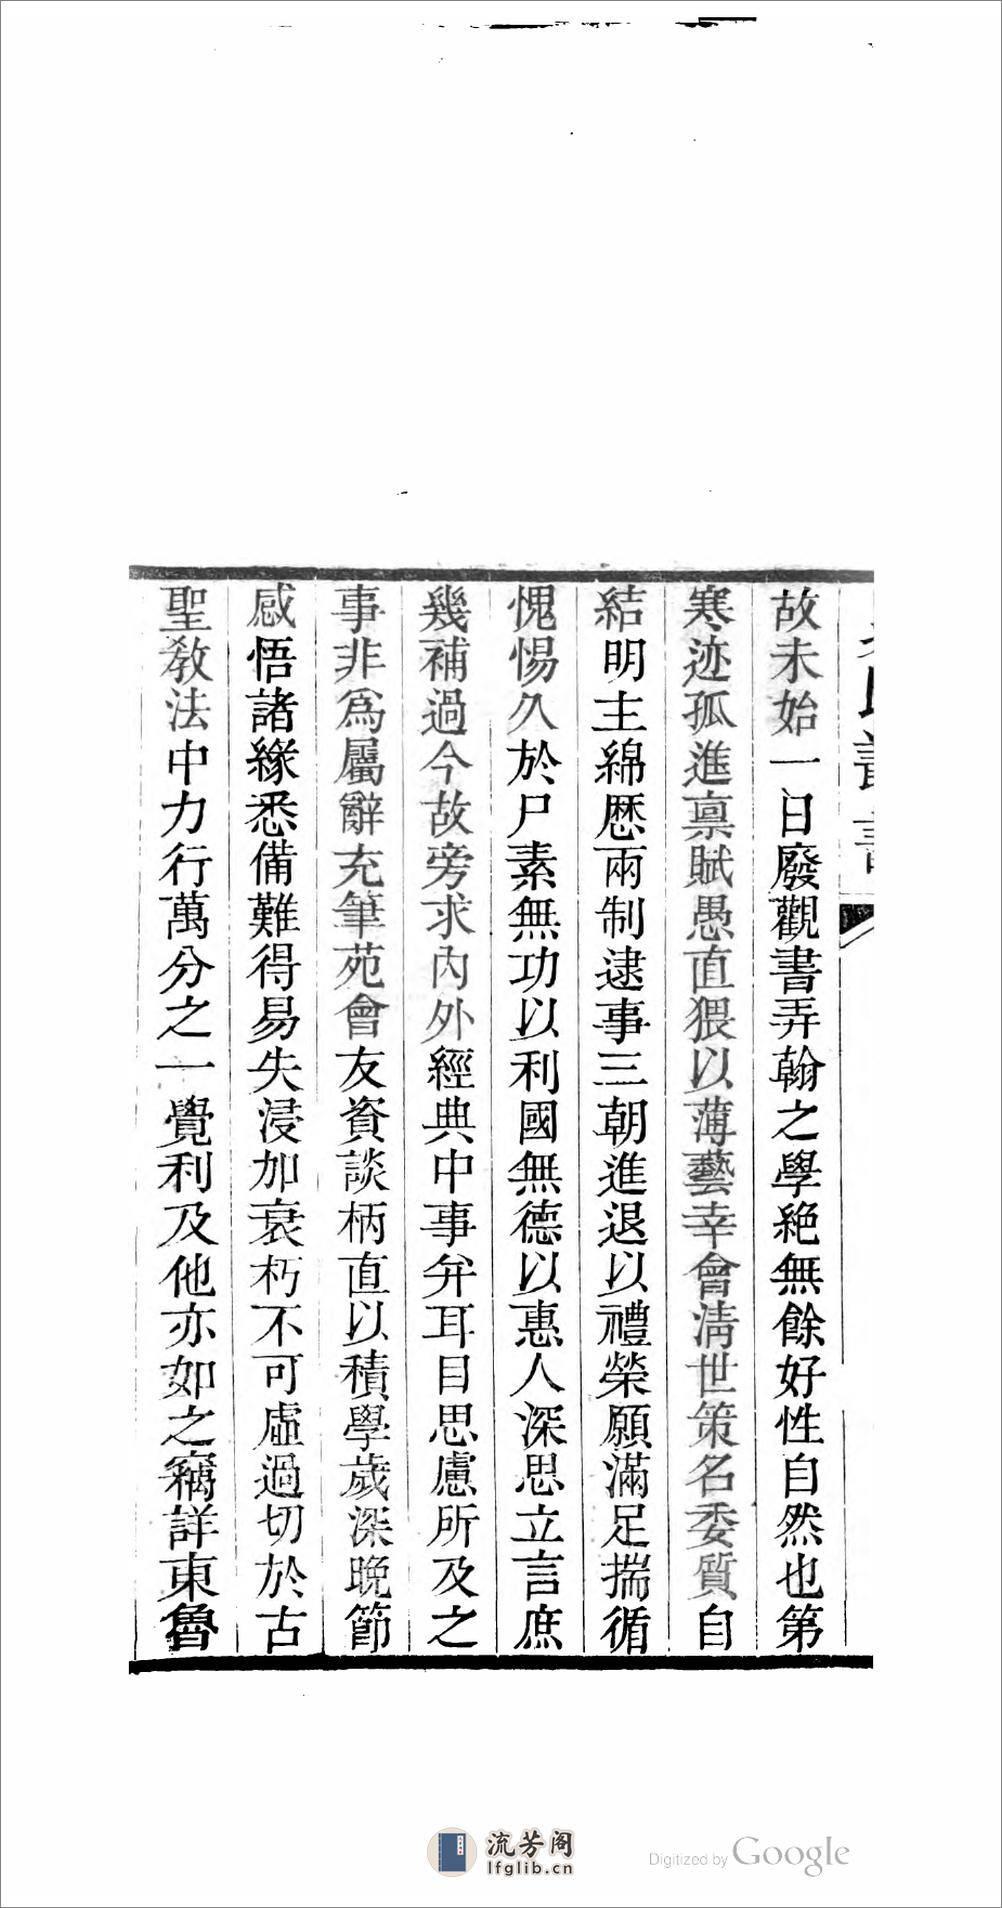 故未始一日廢觀書弄翰之學絶無餘好性自然也第
寒迹孤進禀賦愚直猥以薄藝幸會淸世策名委質自
結明主綿歴兩制逮事三朝進退以禮榮願滿足揣循
愧惕久於尸素無功以利國無德以惠人深思立言庶
幾補過今故旁求內外經典中事弁耳目思慮所及之
事非爲屬辭充筆苑會友資談柄直以積學歲深晚節
感悟諸緣悉備難得易失浸加衰朽不可虛過切於古
聖敎法中力行萬分之一覺利及他亦如之竊詳東魯
流芳阁
lfglib.cn
Digitized by Google